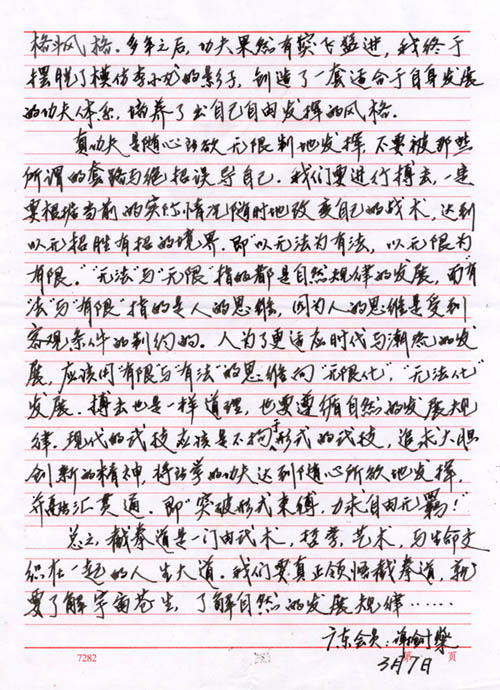 格斗风格。多年之后，功夫果然有突飞猛进，我终于
摆脱了模仿李小龙的影子，创造了一套适合于自身发展
的功夫体系，培养了出自己自由发挥的风格。
真功夫是随心所欲无限制地发挥，不要被那些
所谓的套路与绝招误导自己。我们要进行搏击，一定
要根据当前的实际情况随时地改变自己的战术，达到
以无招胜有招的境界。即“以无法为有法，以无限为
有限。”“无法”与“无限”指的都是自然规律的发展，而“有
法”与“有限”指的是人的思维，因为人的思维是受到
客观条件的制约的。人为了更适应时代与潮流的发
展，应该用“有限与“有法”的思维向“无限化”，“无法化”
发展。搏击也是一样道理，也要遵循自然的发展规
律。现代的武技应该是不拘于形式的武技，追求大胆
创新的精神，将所学的功夫达到随心所欲地发挥，
并融汇贯通。即“突破形式束缚，力求自由无羁！”
总之，截拳道是一门由武术，哲学，艺术，与生命交
织在一起的人生大道。我们要真正领悟截拳道，就
要了解宇宙苍生，了解自然的发展规律……
广东会员：
3月7日
7282
第 页